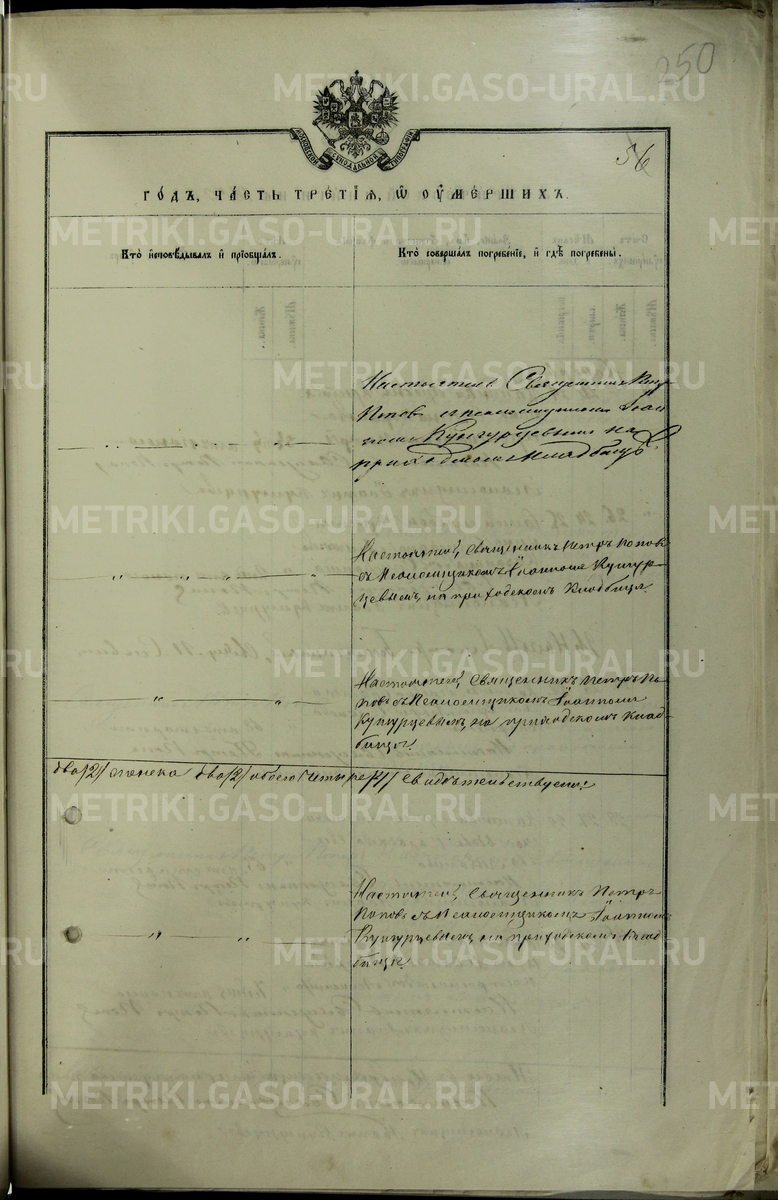 250
МОСКОВСКОЙ СѴНОДАЛЬНОЙ ТИПОГРАФІИ
56
ГО́ДЪ, ЧА́СТЬ ТРЕ́ТІЯ, Ѡ ОУ҆МЕ́РШИХЪ.
Кто̀ и҆сповѣ́дывалъ и҆ пріѡбща́лъ.
Кто̀ соверша́лъ погребе́ніе, и҆ гдѣ̀ погребены̀.
Настоятель Священникъ Петръ
Поповъ съ псаломщикомъ Іоан
номъ Кунгурцевымъ на
приходскомъ кладбищѣ
Настоятель, Священникъ Петръ Поповъ
съ Псаломщикомъ Іоанномъ Кунгур-
цевымъ, на приходскомъ Кладбищѣ.
Настоятель, Священникъ Петръ По-
повъ съ Псаломщикомъ Іоанномъ
Кунгурцевымъ, на приходскомъ Клад-
бищѣ.
два /2/ женска два /2/ обоего четыре /4/ Свидѣтельствуемъ:
Настоятель, Священникъ Петръ
Поповъ съ Псаломщикомъ Іоанномъ
Кунгурцевымъ, на приходскомъ Клад
бищѣ.
METRIKI.GASO-URAL.RU